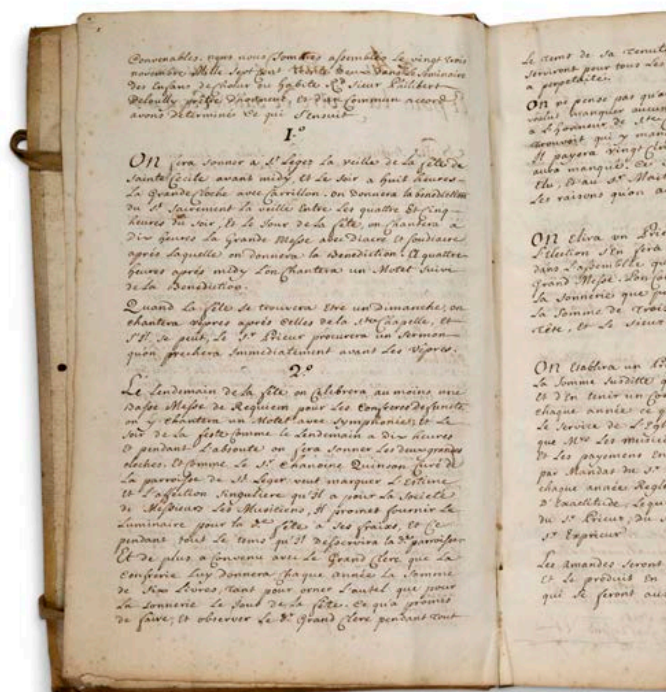 Convenables. nous nous sommes assemblés Le vingt trois
novembre Mille Sept cent trente deux dans Le Seminaire
des Enfans de Chœur du habite Rd Sieur Philibert
Deloully prêtre d'honneur, et d'un Commun accord
avons determinés Ce qui s'ensuit
1.°
ON fera sonner a St Leger La veille de La fête de
Sainte Cecile avant midy, et Le Soir a huit heures
La Grande Cloche avec Carrillon. on donnera la benediction
du St Sacrement La veille Entre Les quattre et Cinq
heures du Soir, et Le Jour de La fête, on chantera a
dix heures La Grande Messe avec Diacre et Soudiacre
après Laquelle on donnera La Benediction. A quattre
heures après midy L'on Chantera un Motet Suivi
de La Benediction.
Quand La fête se trouvera Etre un dimanche, on
chantera vêpres après Celles de La Ste Chapelle, et
S'Il se peut, Le Sr Prieur procurera un Sermon
qu'on prechera Immediatement avant Les vêpres.
2.°
Le Lendemain de La fête on Celebrera au moins une
basse Messe de Requiem pour Les Confreres deffunts
on y Chantera un Motet avec Symphonie; et Le
Soir de La feste Comme Le Lendemain a dix heures
et pendant L'absoute on fera Sonner Les deux grandes
cloches. et Comme Le Sr Chanoine Quinson Curé de
La parroisse de St Leger veut marquer L'estime
et L'affection Singuliere qu'Il a pour La Societé
de Messieurs Les Musiciens, Il promet fournir Le
Luminaire pour la de fête a Ses fraix, et Ce
pendant tout Le tems qu'Il desservira la de parroisse
Et de plus a Convenu avec Le Grand Clerc que La
Confrerie Luy Donnera Chaque année La Somme
de Six Livres, tant pour orner L'autel que pour
La Sonnerie Le Jour de La fête. Ce qu'a promis
de faire, et observer Le dt Grand Clerc pendant tout
Le tems de Sa
serviront pour tous Les
a perpetuité.
ON ne pense pas qu'on
voulut manquer aucun
a L'honneur de Ste
trouvoit qui y man
Il payera vingt
aura manqué.
Elu, et au Sr
Les raisons qu'on a
ON Elira un Prie
L'election s'En fera
dans L'assemblée qu
Grand Messe.
Sa Sonnerie que
La Somme de Trois
tête, et Le Sieur
ON Etablira un
La Somme Susditte
et d'En tenir un
chaque année Ce
Le Service de L'Egl
que Mrs Les Musicie
et Les payemens En
par Mandat du Sr
chaque année Regle
d'Exactitude, Lequ
du Sr Prieur, du
Sr Exprieur
Les Amandes Seront
et Le produit En
qui Se feront aut